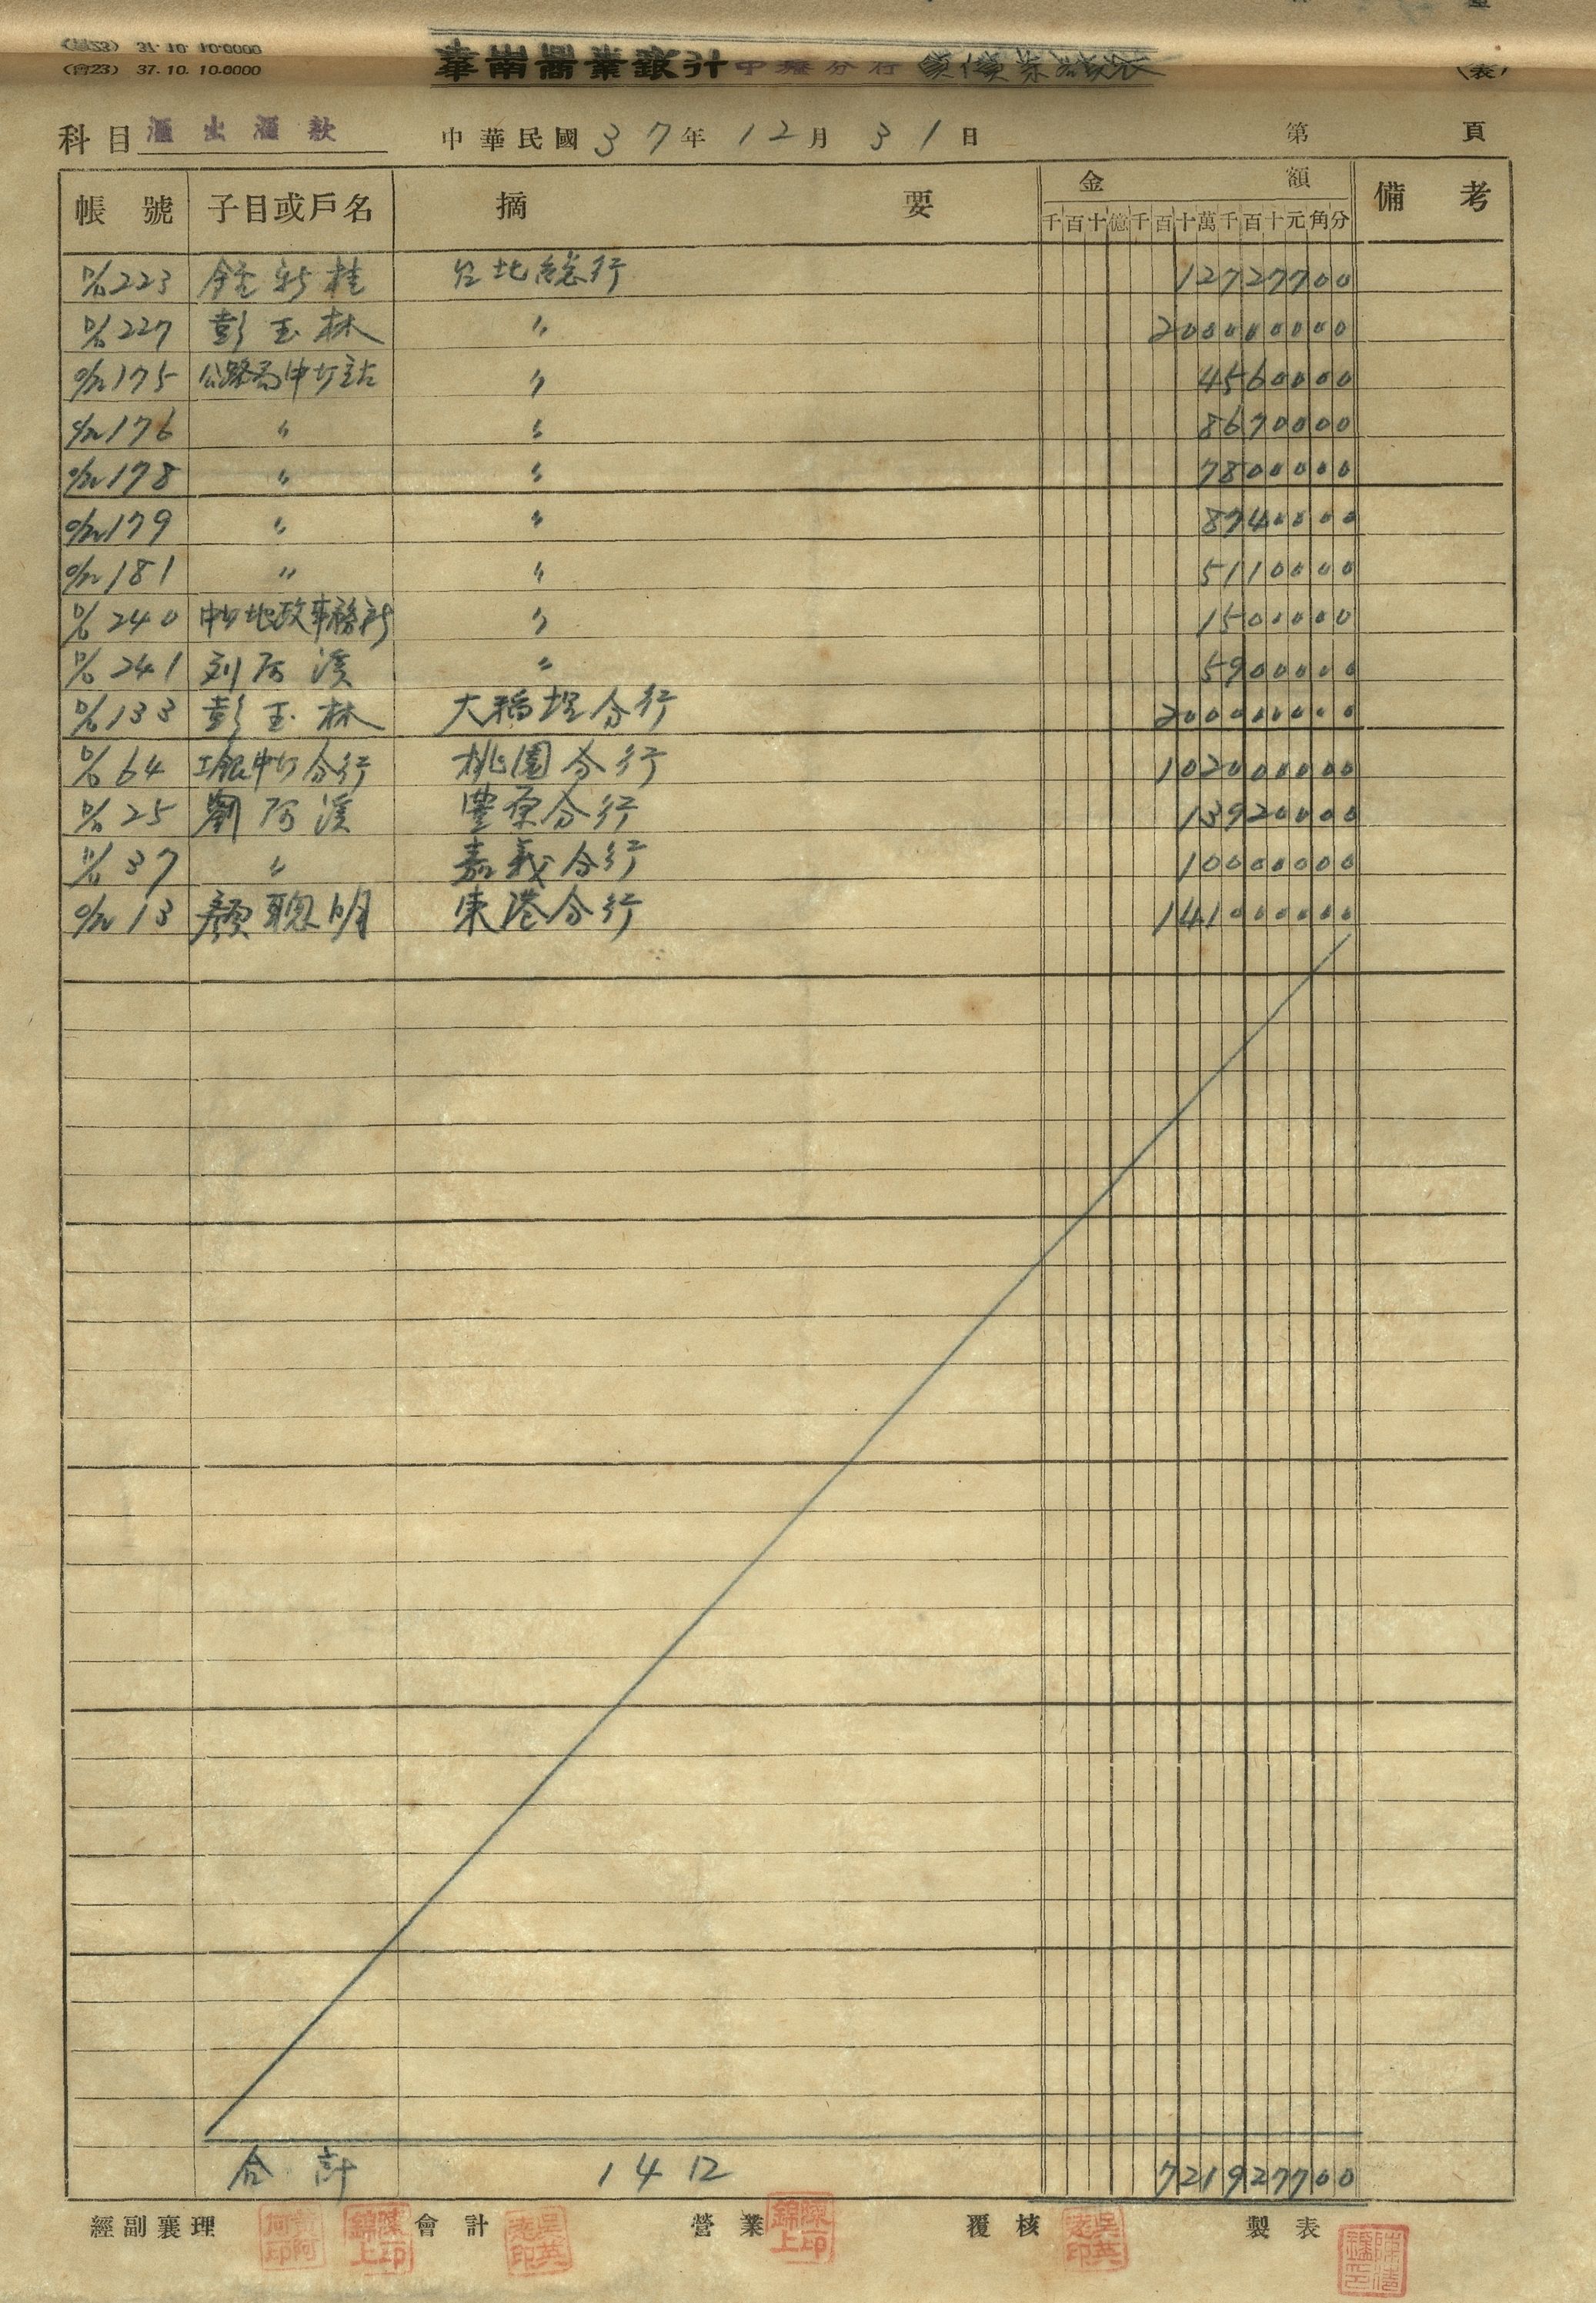 (會23) 37.10.10.0000
華南商業銀行中壢分行
(表)
科目 匯出匯款 中華民國 37年 12月 31日 第 頁
帳號 子目或戶名 摘要 金額 備考
千百十億千百十萬千百十元角分
D/D 223 新桂 台北總行 12727700
D/D 227 彭玉林 〃 200000000
O/R 175 公路局中力站 〃 4560000
O/R 176 〃 〃 8670000
O/R 178 〃 〃 7800000
O/R 179 〃 〃 8740000
O/R 181 〃 〃 5110000
D/D 240 中力地政事務所 〃 1500000
D/D 241 刘阿溪 〃 5900000
D/D 133 彭玉林 大稻埕分行 200000000
D/D 64 工銀中力分行 桃園分行 102000000
D/D 25 劉阿溪 豐原分行 13920000
D/D 37 〃 嘉義分行 10000000
O/R 13 顏聰明 東港分行 141000000
合計 14口 721927700
經副襄理 會計 營業 覆核 製表